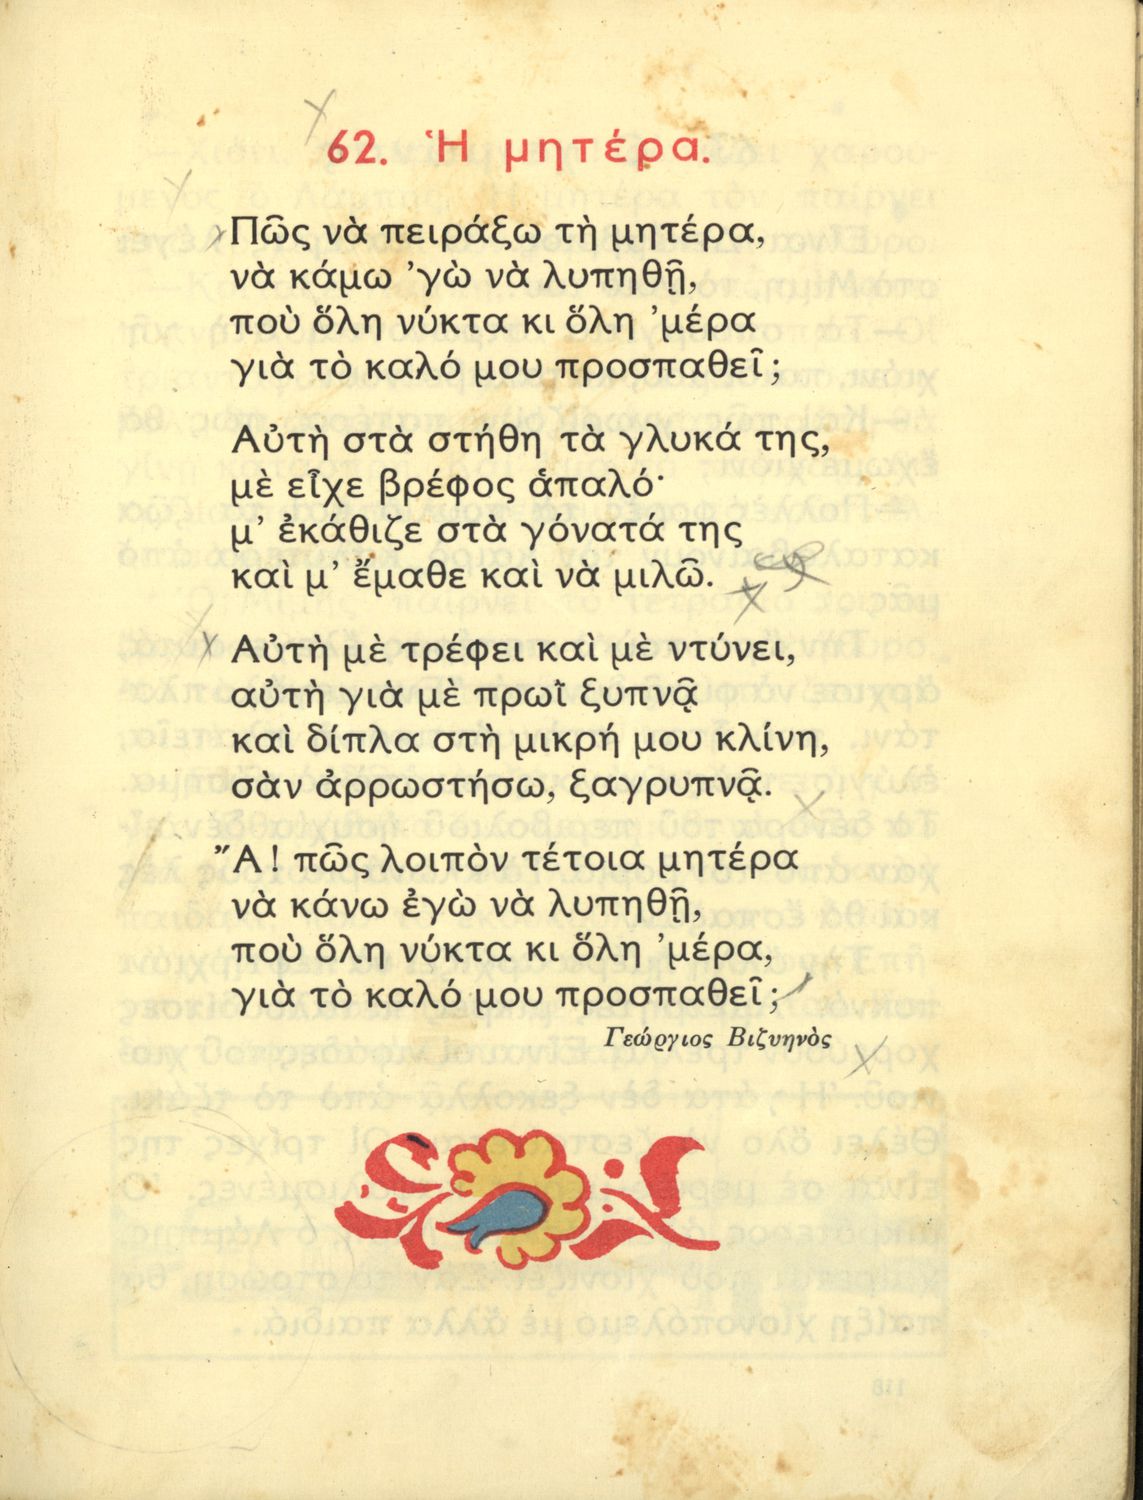 62. Ἡ μητέρα.
Πῶς νὰ πειράξω τὴ μητέρα,
νὰ κάμω ’γὼ νὰ λυπηθῇ,
ποὺ ὅλη νύκτα κι ὅλη ’μέρα
γιὰ τὸ καλό μου προσπαθεῖ;
Αὐτὴ στὰ στήθη τὰ γλυκά της,
μὲ εἶχε βρέφος ἁπαλό·
μ’ ἐκάθιζε στὰ γόνατά της
καὶ μ’ ἔμαθε καὶ νὰ μιλῶ.
Αὐτὴ μὲ τρέφει καὶ μὲ ντύνει,
αὐτὴ γιὰ μὲ πρωῒ ξυπνᾷ
καὶ δίπλα στὴ μικρή μου κλίνη,
σὰν ἀρρωστήσω, ξαγρυπνᾷ.
Ἄ! πῶς λοιπὸν τέτοια μητέρα
νὰ κάνω ἐγὼ νὰ λυπηθῇ,
ποὺ ὅλη νύκτα κι ὅλη ’μέρα,
γιὰ τὸ καλό μου προσπαθεῖ;
Γεώργιος Βιζυηνὸς